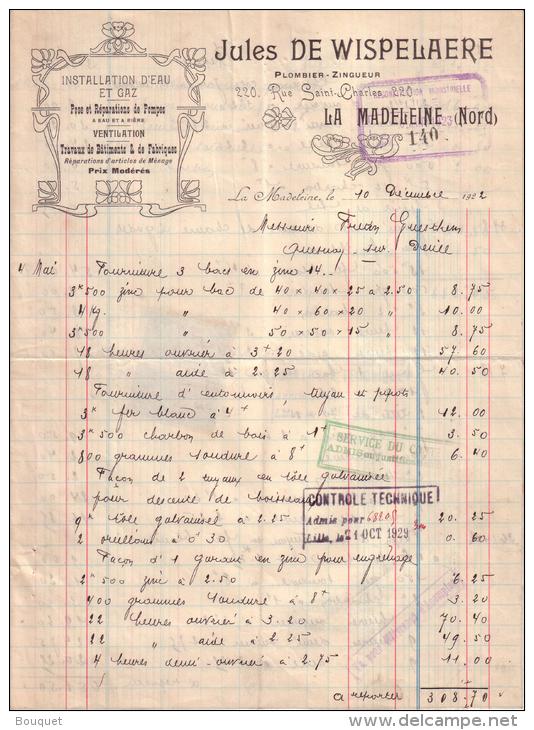 INSTALLATION D'EAU
ET GAZ
Pose et Réparations de Pompes
A EAU ET A BIÈRE
VENTILATION
Travaux de Bâtiments & de Fabriques
Réparations d'articles de Ménage
Prix Modérés
Jules DE WISPELAERE
PLOMBIER-ZINGUEUR
220, Rue Saint-Charles, 220
LA MADELEINE (Nord)
140
La Madeleine, le 10 Décembre 1922
Messieurs
Quesnoy sur Deûle
4 Mai Fourniture 3 bacs en zinc 14
3k500 zinc pour bac de 40 x 40 x 25 à 2.50 8.75
4 kg. " 40 x 60 x 20 " 10.00
3k500 " 50 x 50 x 15 " 8.75
18 heures ouvrier à 3f20 57.60
18 " aide à 2.25 40.50
Fourniture d'entonnoirs, tuyau et
3k fer blanc à 4f 12.00
3k500 charbon de bois à 1f 3.50
800 grammes soudure à 8f 6.40
SERVICE DU
Façon de 2 tuyaux en tôle galvanisée
pour descente de boisseau
CONTROLE TECHNIQUE
Admis pour
Lille, le 21 OCT 1929
9k tôle galvanisé à 2.25 20.25
2 oreillons à 0f30 0.60
Façon d'1 garant en zinc pour engrenage
2k500 zinc à 2.50 6.25
400 grammes soudure à 8f 3.20
22 heures ouvrier à 3.20 70.40
22 " aide à 2.25 49.50
4 heures demi-ouvrier à 2.75 11.00
A reporter 308.70
Bouquet
www.delcampe.net